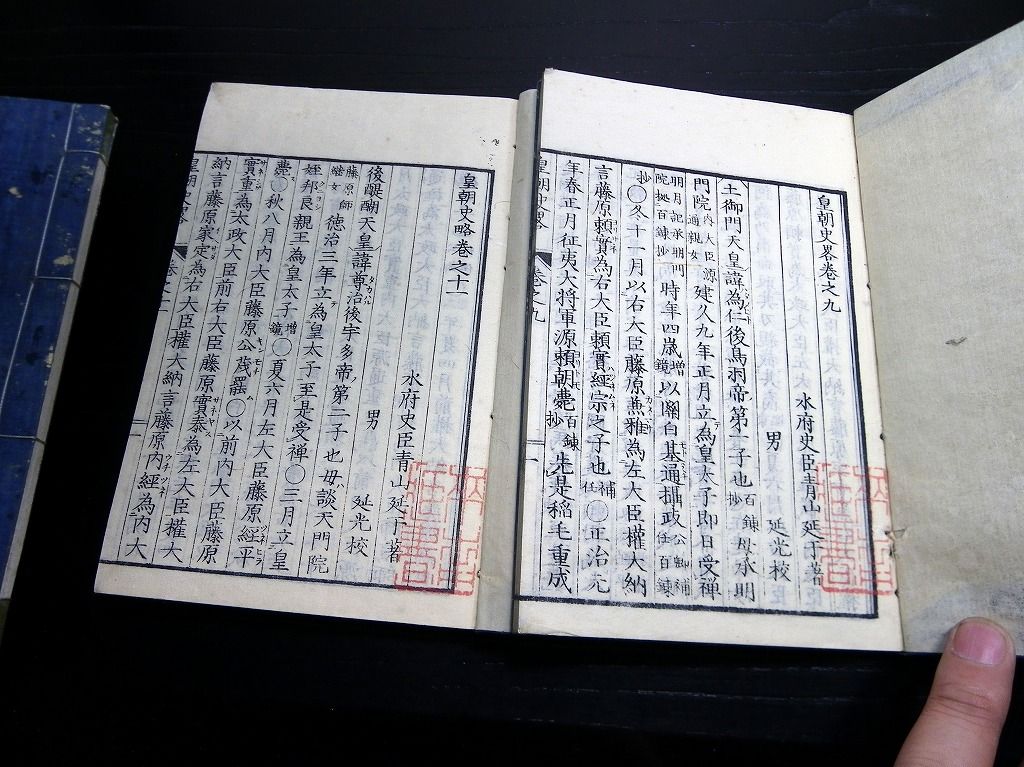 皇朝史畧卷之九
水府史臣青山延于著
男 延光校
土御門天皇諱為仁後鳥羽帝第一子也百鍊抄母承明
門院内大臣源通親女建久九年正月立為皇太子即日受禪
明月記承明門院抛百鍊抄時年四歳增鏡以關白基通攝政公卿補任百鍊
抄〇冬十一月以右大臣藤原兼雅為左大臣權大納
言藤原頼實為右大臣頼實經宗之子也補任〇正治元
年春正月征夷大将軍源頼朝薨百鍊抄先是稲毛重成
皇朝史畧 卷之九 一
皇朝史略卷之十一
水府史臣青山延于著
男 延光校
後醍醐天皇諱尊治後宇多帝第二子也母談天門院
藤原師繼女德治三年立為皇太子至是受禪〇三月立皇
姪邦良親王為皇太子增鏡〇夏六月左大臣藤原經平
薨〇秋八月内大臣藤原公茂罷〇以前内大臣藤原
實重為太政大臣前右大臣藤原實泰為左大臣權大
納言藤原家定為右大臣權大納言藤原内經為内大
皇朝史略 卷之十一 一